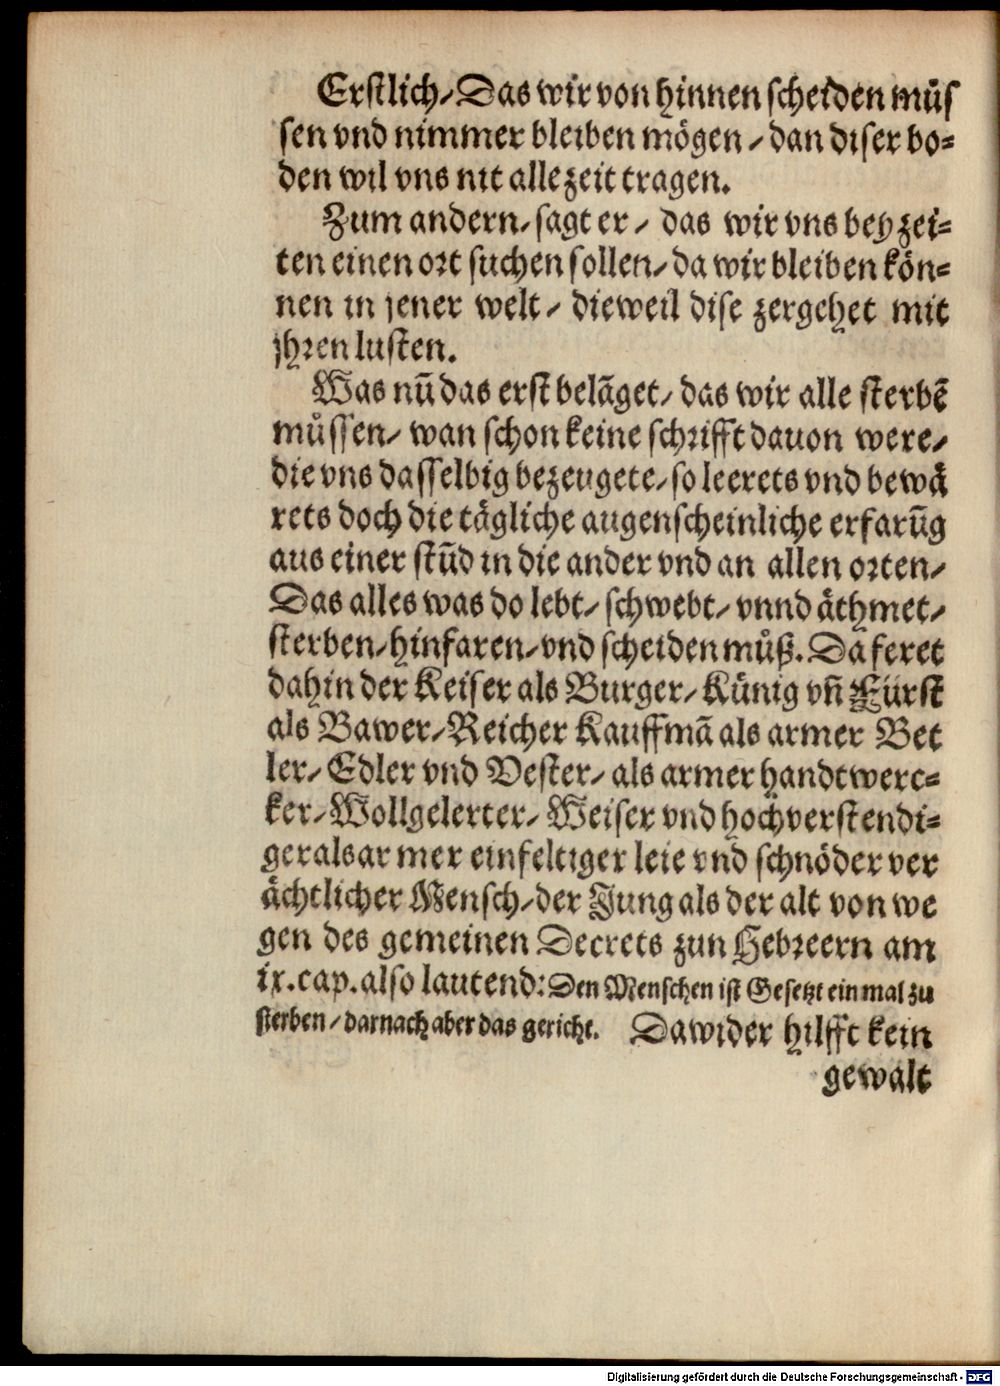 Erstlich/ Das wir von hinnen scheiden müs
sen vnd nimmer bleiben mögen/ dan diser bo=
den wil vns nit alle zeit tragen.
Zum andern/ sagt er/ das wir vns bey zei=
ten einen ort suchen sollen/ da wir bleiben kön=
nen in jener welt/ dieweil dise zergehet mit
jhren lusten.
Was nū das erst belāget/ das wir alle sterbē
můssen/ wan schon keine schrifft dauon were/
die vns dasselbig bezeugete/ so leerets vnd bewä
rets doch die tägliche augenscheinliche erfarūg
aus einer stūd in die ander vnd an allen orten/
Das alles was do lebt/ schwebt/ vnnd äthmet/
sterben/ hinfaren/ vnd scheiden můß. Da feret
dahin der Keiser als Burger/ Künig vñ Fürst
als Bawer/ Reicher Kauffmā als armer Bet
ler/ Edler vnd Vester/ als armer handtwerc=
ker/ Wollgelerter/ Weiser vnd hochverstendi=
ger als armer einfeltiger leie vnd schnöder ver
ächtlicher Mensch/ der Jung als der alt von we
gen des gemeinen Decrets zun Hebreern am
ix. cap. also lautend: Den Menschen ist Gesetzt ein mal zu
sterben/ darnach aber das gericht. Dawider hilfft kein
gewalt
Digitalisierung gefördert durch die Deutsche Forschungsgemeinschaft - DFG